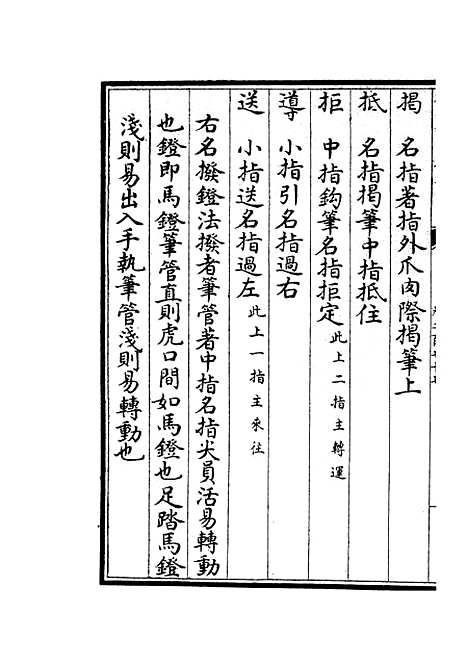 揭　名指著指外爪肉際揭筆上
抵　名指揭筆中指抵住
拒　中指鈎筆名指拒定此上二指主轉運
導　小指引名指過右
送　小指送名指過左此上一指主來往
右名撥鐙法撥者筆管著中指名指尖員活易轉動
也鐙即馬鐙筆管直則虎口間如馬鐙也足踏馬鐙
淺則易出入手執筆管淺則易轉動也